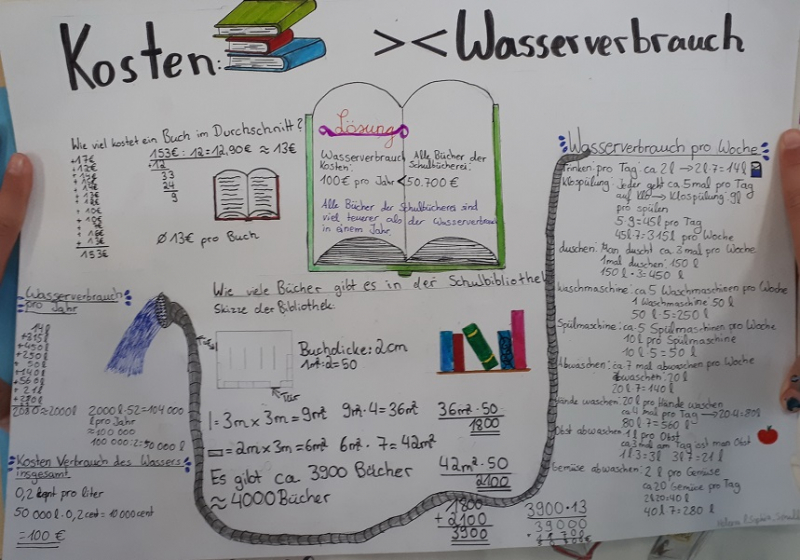 Kosten: >< Wasserverbrauch
Wie viel kostet ein Buch im Durchschnitt?
153€ : 12 = 12,90€ ≈ 13€
-12
33
24
9
153€
Ø 13€ pro Buch
Lösung
Wasserverbrauch
Kosten:
100€ pro Jahr <
Alle Bücher der
Schulbücherei:
50.700 €
Alle Bücher der Schulbücherei sind
viel teuerer als der Wasserverbrauch
in einem Jahr
Wasserverbrauch pro Woche
Trinken: pro Tag: ca 2l → 2l·7=14l
Klospülung: Jeder geht ca 5 mal pro Tag
auf klo → Klospülung: 9l
pro spülen
5·9=45l pro Tag
45l·7=315l pro Woche
duschen: Man duscht ca 3 mal pro Woche
1mal duschen: 150 l
150 l·3=450 l
waschmaschine: ca 5 Waschmaschinen pro Woche
1 Waschmaschine 50 l
50 l·5=250 l
Spülmaschine: ca 5 Spülmaschinen pro Woche
10 l pro Spülmaschine
10l·5=50 l
Abwaschen: ca 7 mal abwaschen pro Woche
abwaschen: 20l
20l·7=140l
Hände waschen: 20l pro Hände waschen
ca 4 mal pro Tag → 20·4=80l
80l·7=560l
Obst abwaschen: 1l pro Obst
ca 3 mal am Tag isst man Obst
1l·3=3l 3l·7=21l
Gemüse abwaschen: 2 l pro Gemüse
ca 20 Gemüse pro Tag
2l·20=40l
40l·7=280 l
Wasserverbrauch
pro Jahr
14l
+315l
+450l
+250l
+50l
+140l
+560l
+21l
+280l
2080≈2000l
2000l·52=104 000
l pro Jahr
≈100 000
100 000:2=50 000 l
Kosten Verbrauch des Wassers
insgesamt
0,2 cent pro liter
50 000 l·0,2 cent=10 000 cent
=100€
Wie viele Bücher gibt es in der Schulbibliothek
Skizze der Bibliothek:
Tür
Buchdicke: 2cm
1m²:d=50
|=3m×3m=9m² 9m²·4=36m²
36m²·50
1800
▭=2m×3m=6m² 6m²·7=42m²
42m²·50
2100
Es gibt ca. 3900 Bücher
≈4000 Bücher
1800
+2100
3900
3900·13
39000